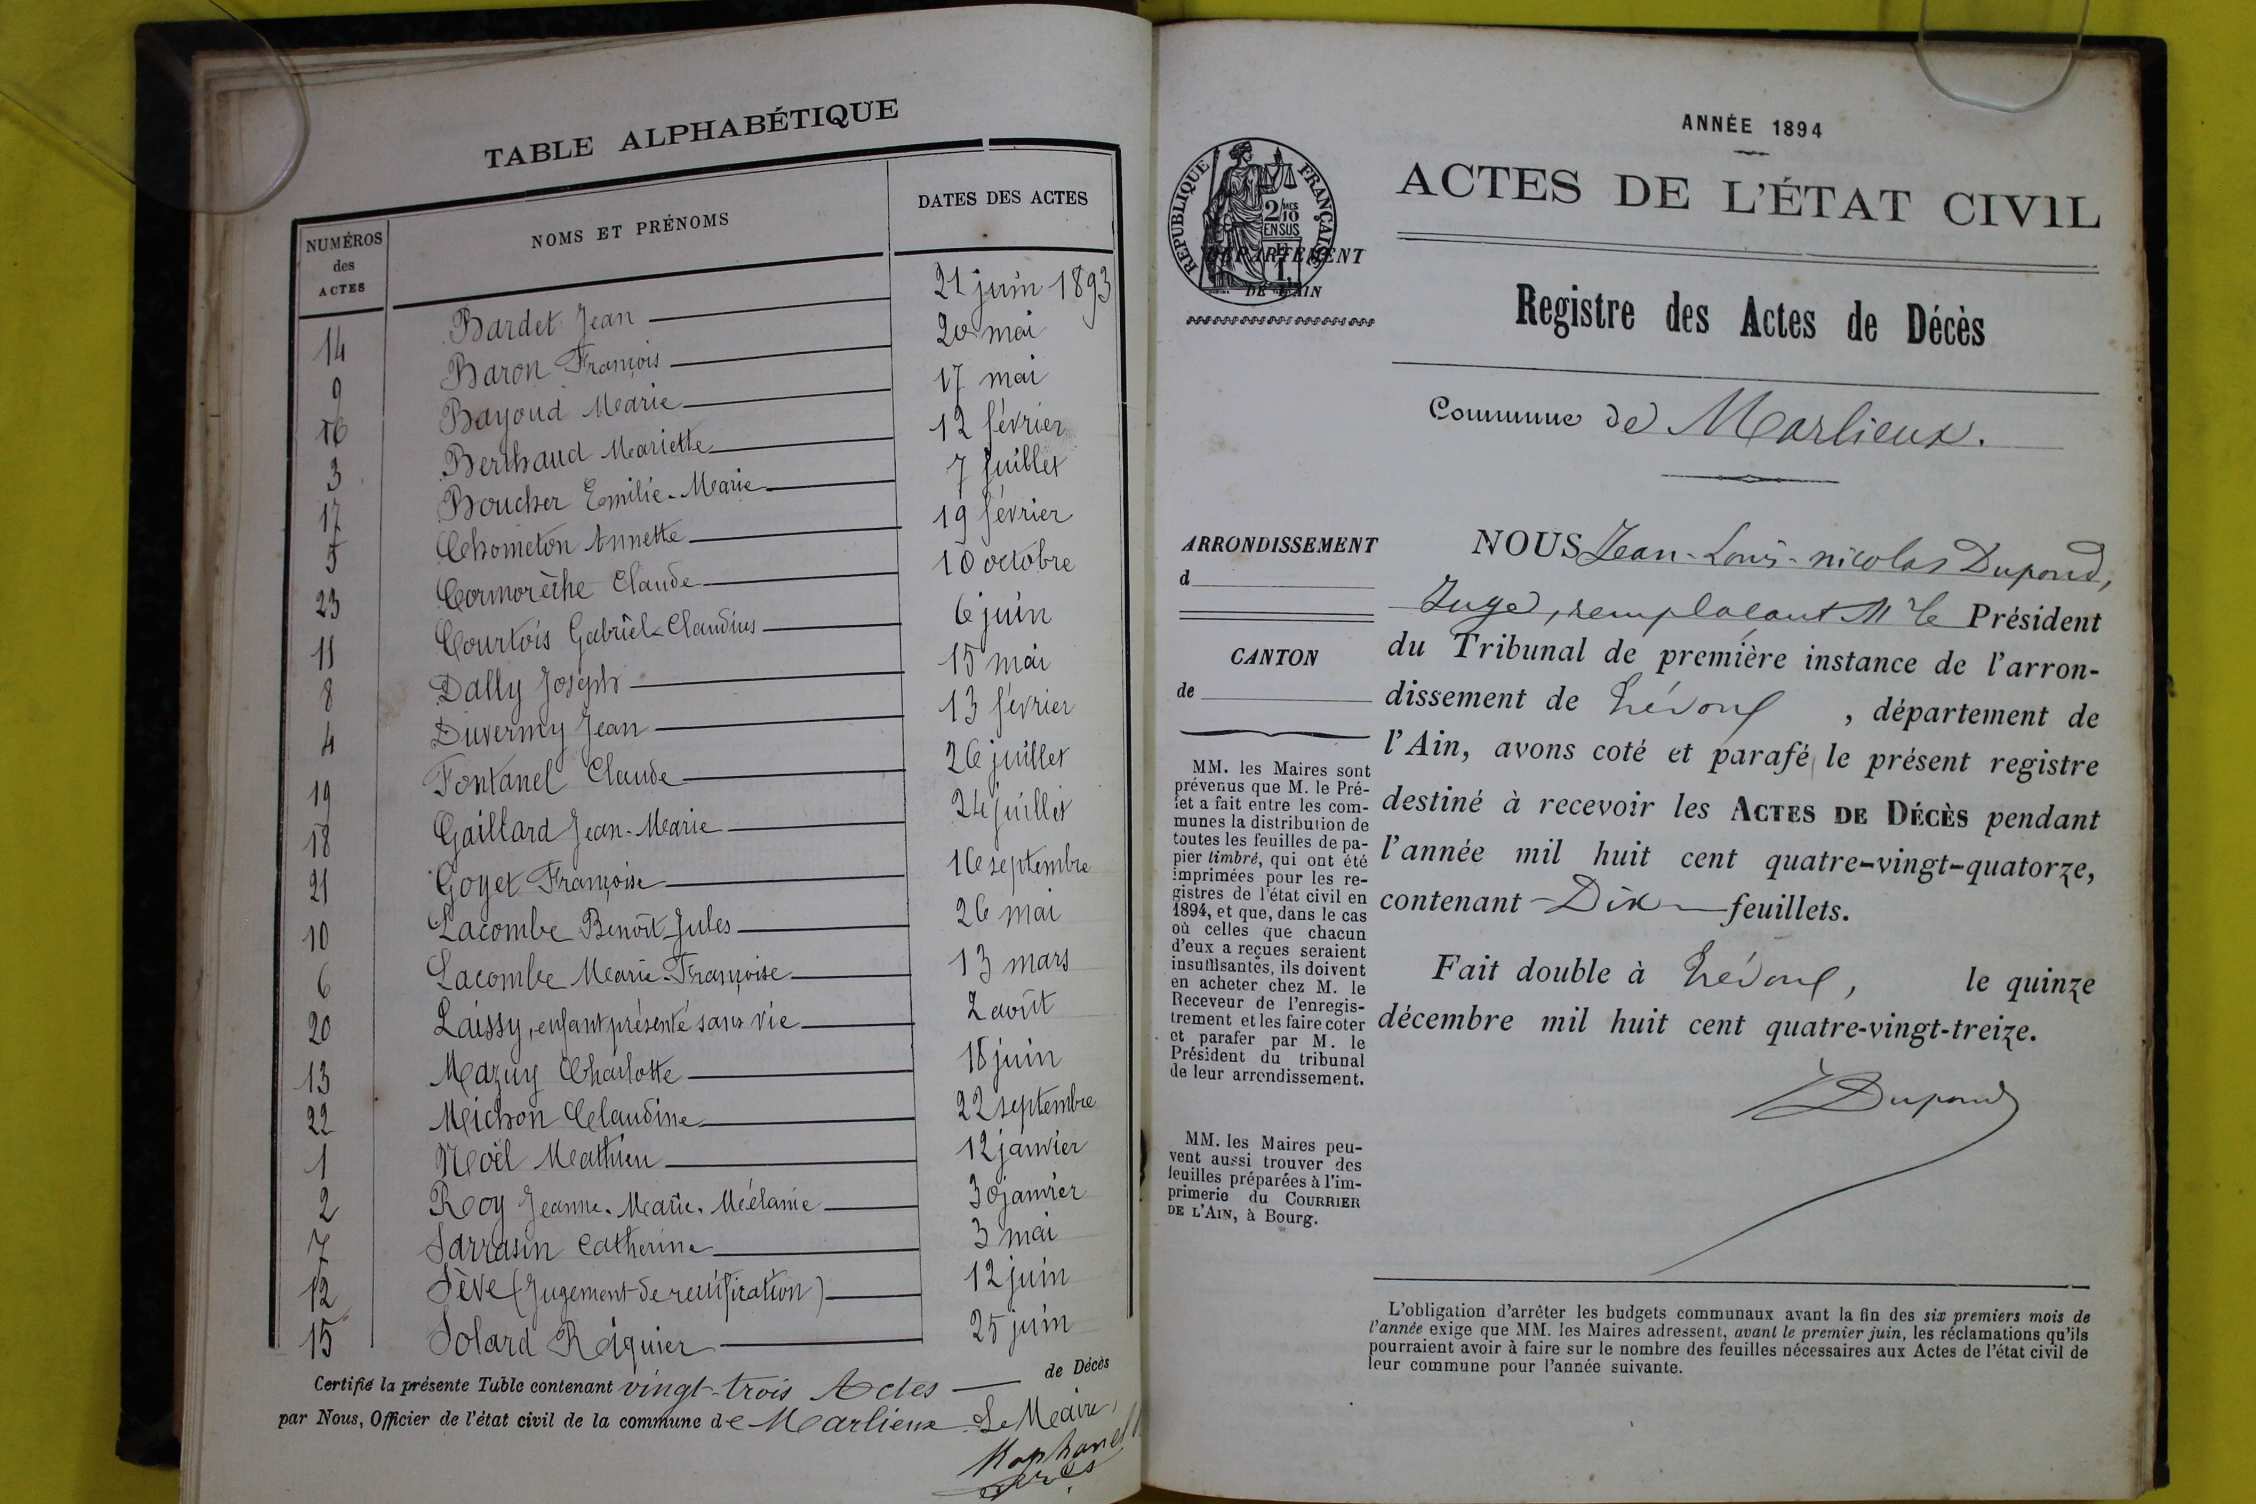 TABLE ALPHABÉTIQUE
NUMÉROS des ACTES
NOMS ET PRÉNOMS
DATES DES ACTES
14 Bardet Jean 21 juin 1893
9 Baron François 20 mai
16 Bayoud Marie 17 mai
3 Berthaud Mariette 12 février
17 Boucher Emilie-Marie 7 juillet
5 Chometon Annette 19 février
23 Cormorèche Claude 10 octobre
11 Courtois Gabriel-Claudius 6 juin
8 Dally Joseph 15 mai
4 Duvernay Jean 13 février
19 Fontanel Claude 26 juillet
18 Gaillard Jean-Marie 24 juillet
21 Goyet Françoise 16 septembre
10 Lacombe Benoît-Jules 26 mai
6 Lacombe Marie-Françoise 13 mars
20 Laissy, enfant présenté sans vie 2 août
13 Mazuy Charlotte 18 juin
22 Michon Claudine 22 septembre
1 Noël Mathieu 12 janvier
2 Roy Jeanne-Marie-Mélanie 30 janvier
7 Sarrasin Catherine 3 mai
12 Sève (Jugement de rectification) 12 juin
15 Solard Régnier 25 juin
Certifié la présente Table contenant vingt-trois Actes de Décès
par Nous, Officier de l'état civil de la commune de Marlieux Le Maire,
ANNÉE 1894
ACTES DE L'ÉTAT CIVIL
RÉPUBLIQUE FRANÇAISE
2/10 MES
EN SUS
DÉPARTEMENT
DE L'AIN
Registre des Actes de Décès
Commune de Marlieux.
ARRONDISSEMENT
d
CANTON
de
MM. les Maires sont
prévenus que M. le Pré-
fet a fait entre les com-
munes la distribution de
toutes les feuilles de pa-
pier timbré, qui ont été
imprimées pour les re-
gistres de l'état civil en
1894, et que, dans le cas
où celles que chacun
d'eux a reçues seraient
insuffisantes, ils doivent
en acheter chez M. le
Receveur de l'enregis-
trement et les faire coter
et parafer par M. le
Président du tribunal
de leur arrondissement.
MM. les Maires peu-
vent aussi trouver des
feuilles préparées à l'im-
primerie du COURRIER
DE L'AIN, à Bourg.
NOUS Jean-Louis-nicolas Dupond,
Juge, remplaçant M le Président
du Tribunal de première instance de l'arron-
dissement de Trévoux, département de
l'Ain, avons coté et parafé le présent registre
destiné à recevoir les ACTES DE DÉCÈS pendant
l'année mil huit cent quatre-vingt-quatorze,
contenant Dix feuillets.
Fait double à Trévoux, le quinze
décembre mil huit cent quatre-vingt-treize.
Dupond
L'obligation d'arrêter les budgets communaux avant la fin des six premiers mois de
l'année exige que MM. les Maires adressent, avant le premier juin, les réclamations qu'ils
pourraient avoir à faire sur le nombre des feuilles nécessaires aux Actes de l'état civil de
leur commune pour l'année suivante.